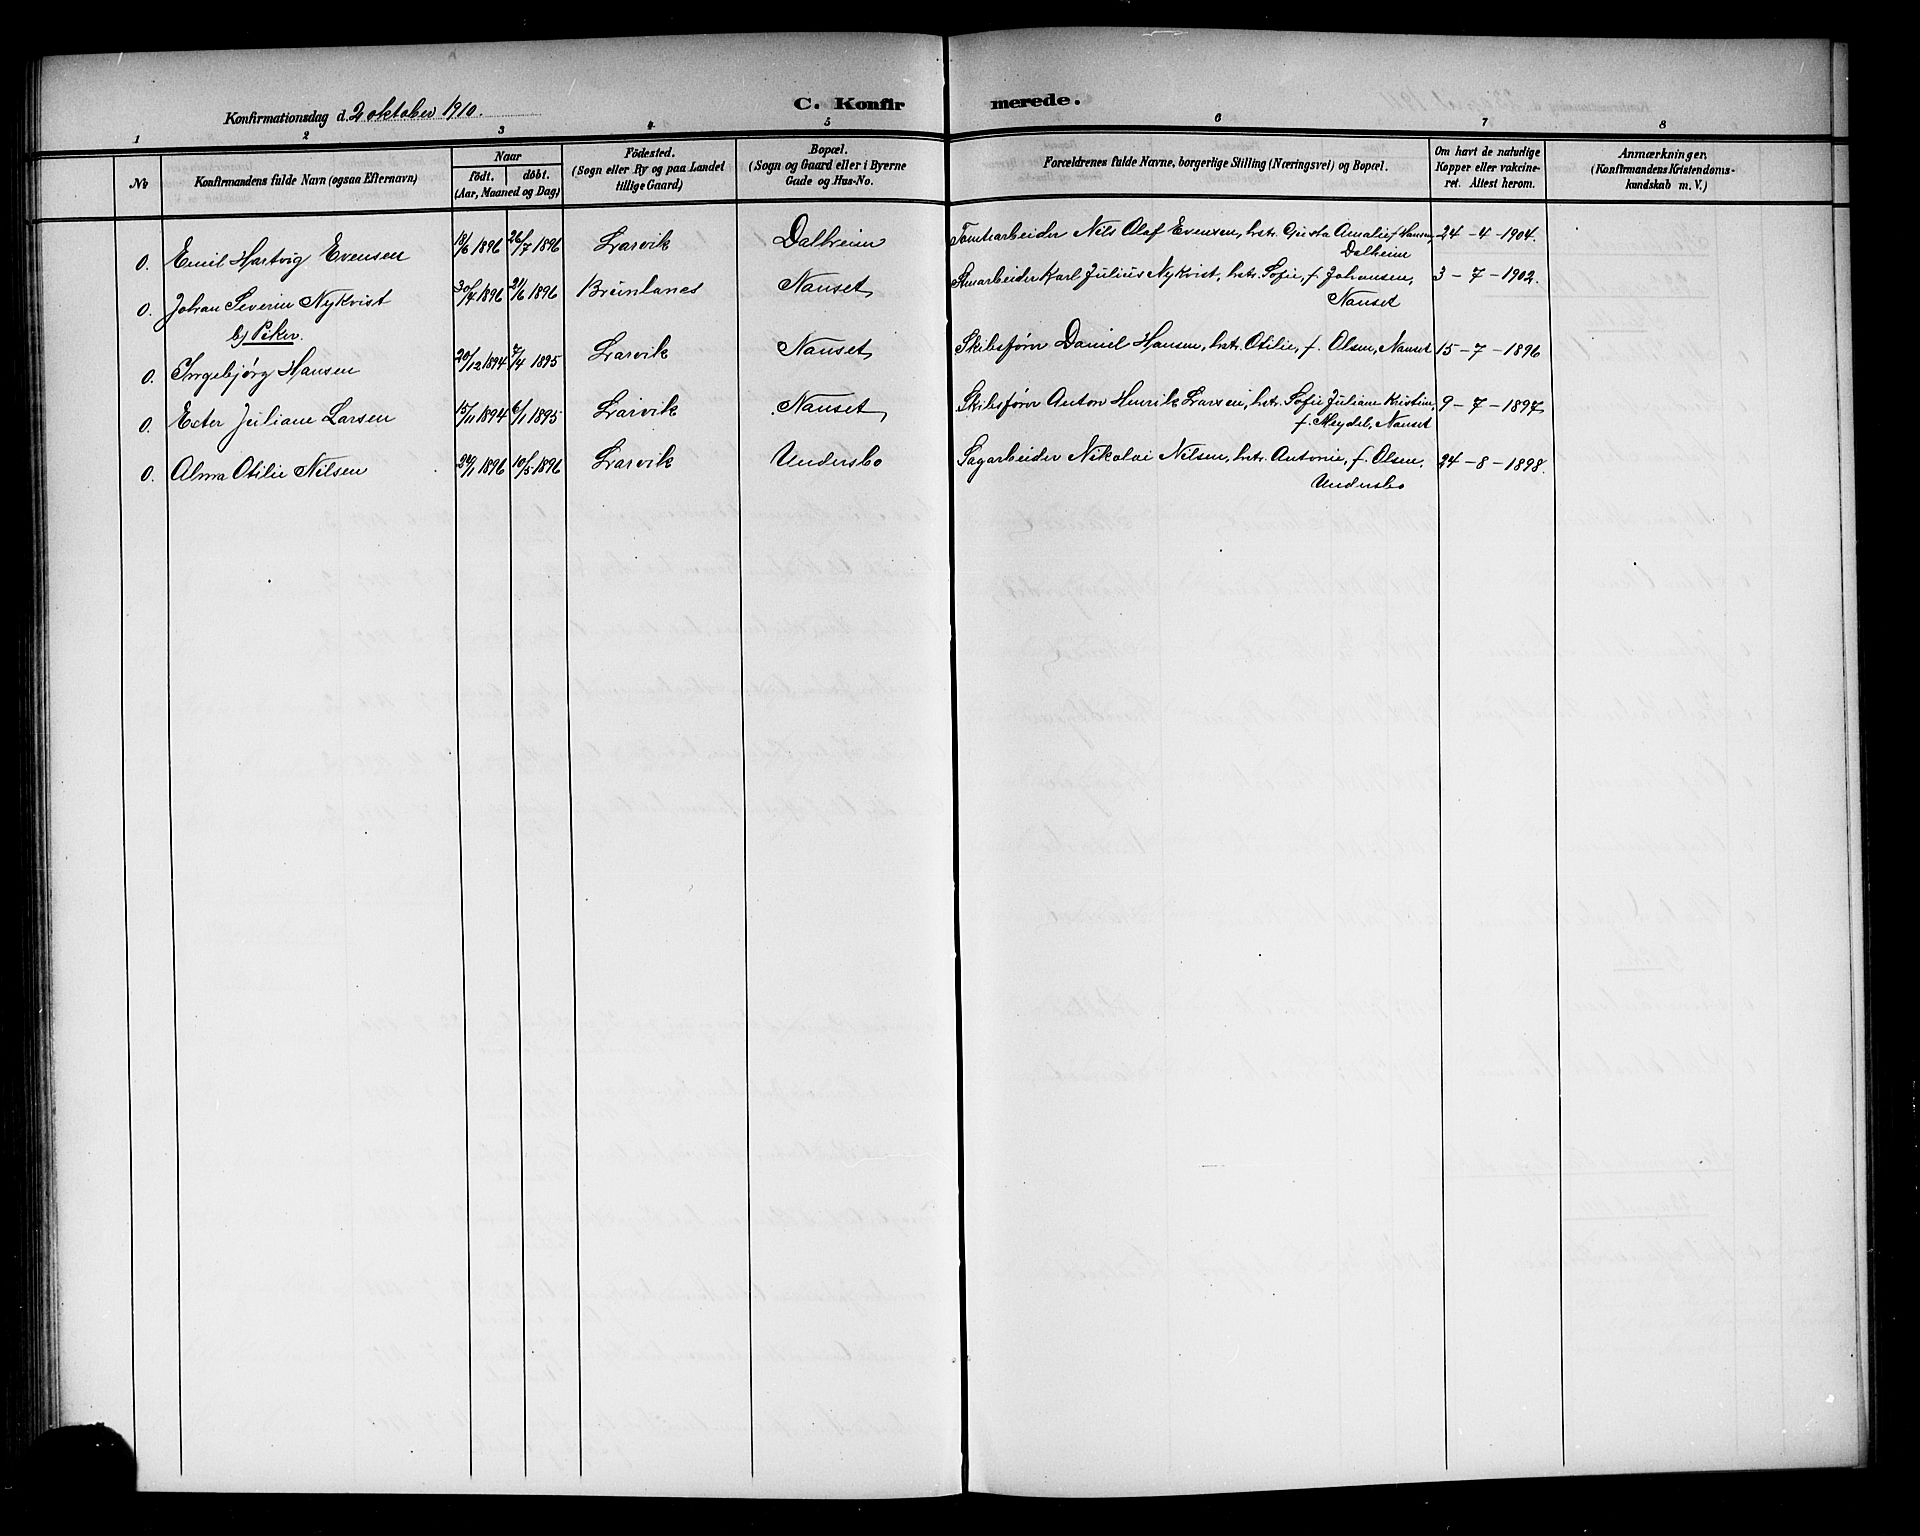 Konfirmationsdag d. 2 oktober 1910.
C. Konfir merede.
1 2 3 4 5 6 7 8
No
Konfirmandens fulde Navn (ogsaa Efternavn)
Naar
Födt. döbt.
(Aar, Maaned og Dag)
Födested.
(Sogn eller By og paa Landet
tillige Gaard)
Bopæl.
(Sogn og Gaard eller i Byerne
Gade og Hus-No.
Forældrenes fulde Navne, borgerlige Stilling (Næringsvei) og Bopæl.
Om havt de naturlige
Kopper eller vakcine-
ret. Attest herom.
Anmærkninger.
(Konfirmandens Kristendoms-
kundskab m. V.)
0. Emil Hartvig Evensen 18/6 1896 26/7 1896 Larvik Dalheim Tomtearbeider Nils Olaf Evensen, hstr. Gusta Amalie f. Hansen, 24 - 4 - 1904.
Dalheim
0. Johan Severin Nykvist 30/4 1896 21/6 1896 Brunlanes Nanset Karl Julius Nykvist, hstr. Sofie, f. Johansen, 3 - 7 - 1902.
Nanset
b) Piker.
0. Ingebjørg Hansen 20/12 1894 7/4 1895 Larvik Nanset Skibsfører Daniel Hansen, hstr. Otilie, f. Olsen, Nanset 15 - 7 - 1896
0. Ester Juliane Larsen 15/11 1894 6/1 1895 Larvik Nanset Skibsfører Anton Henrik Larsen, hstr. Sofie Juliane Kristine, 9 - 7 - 1897
f. Meydel, Nanset
0. Alma Otilie Nilsen 24/1 1896 10/5 1896 Larvik Undersbo Sagarbeider Nikolai Nilsen, hstr. Antonie, f. Olsen, 24 - 8 - 1898.
Undersbo